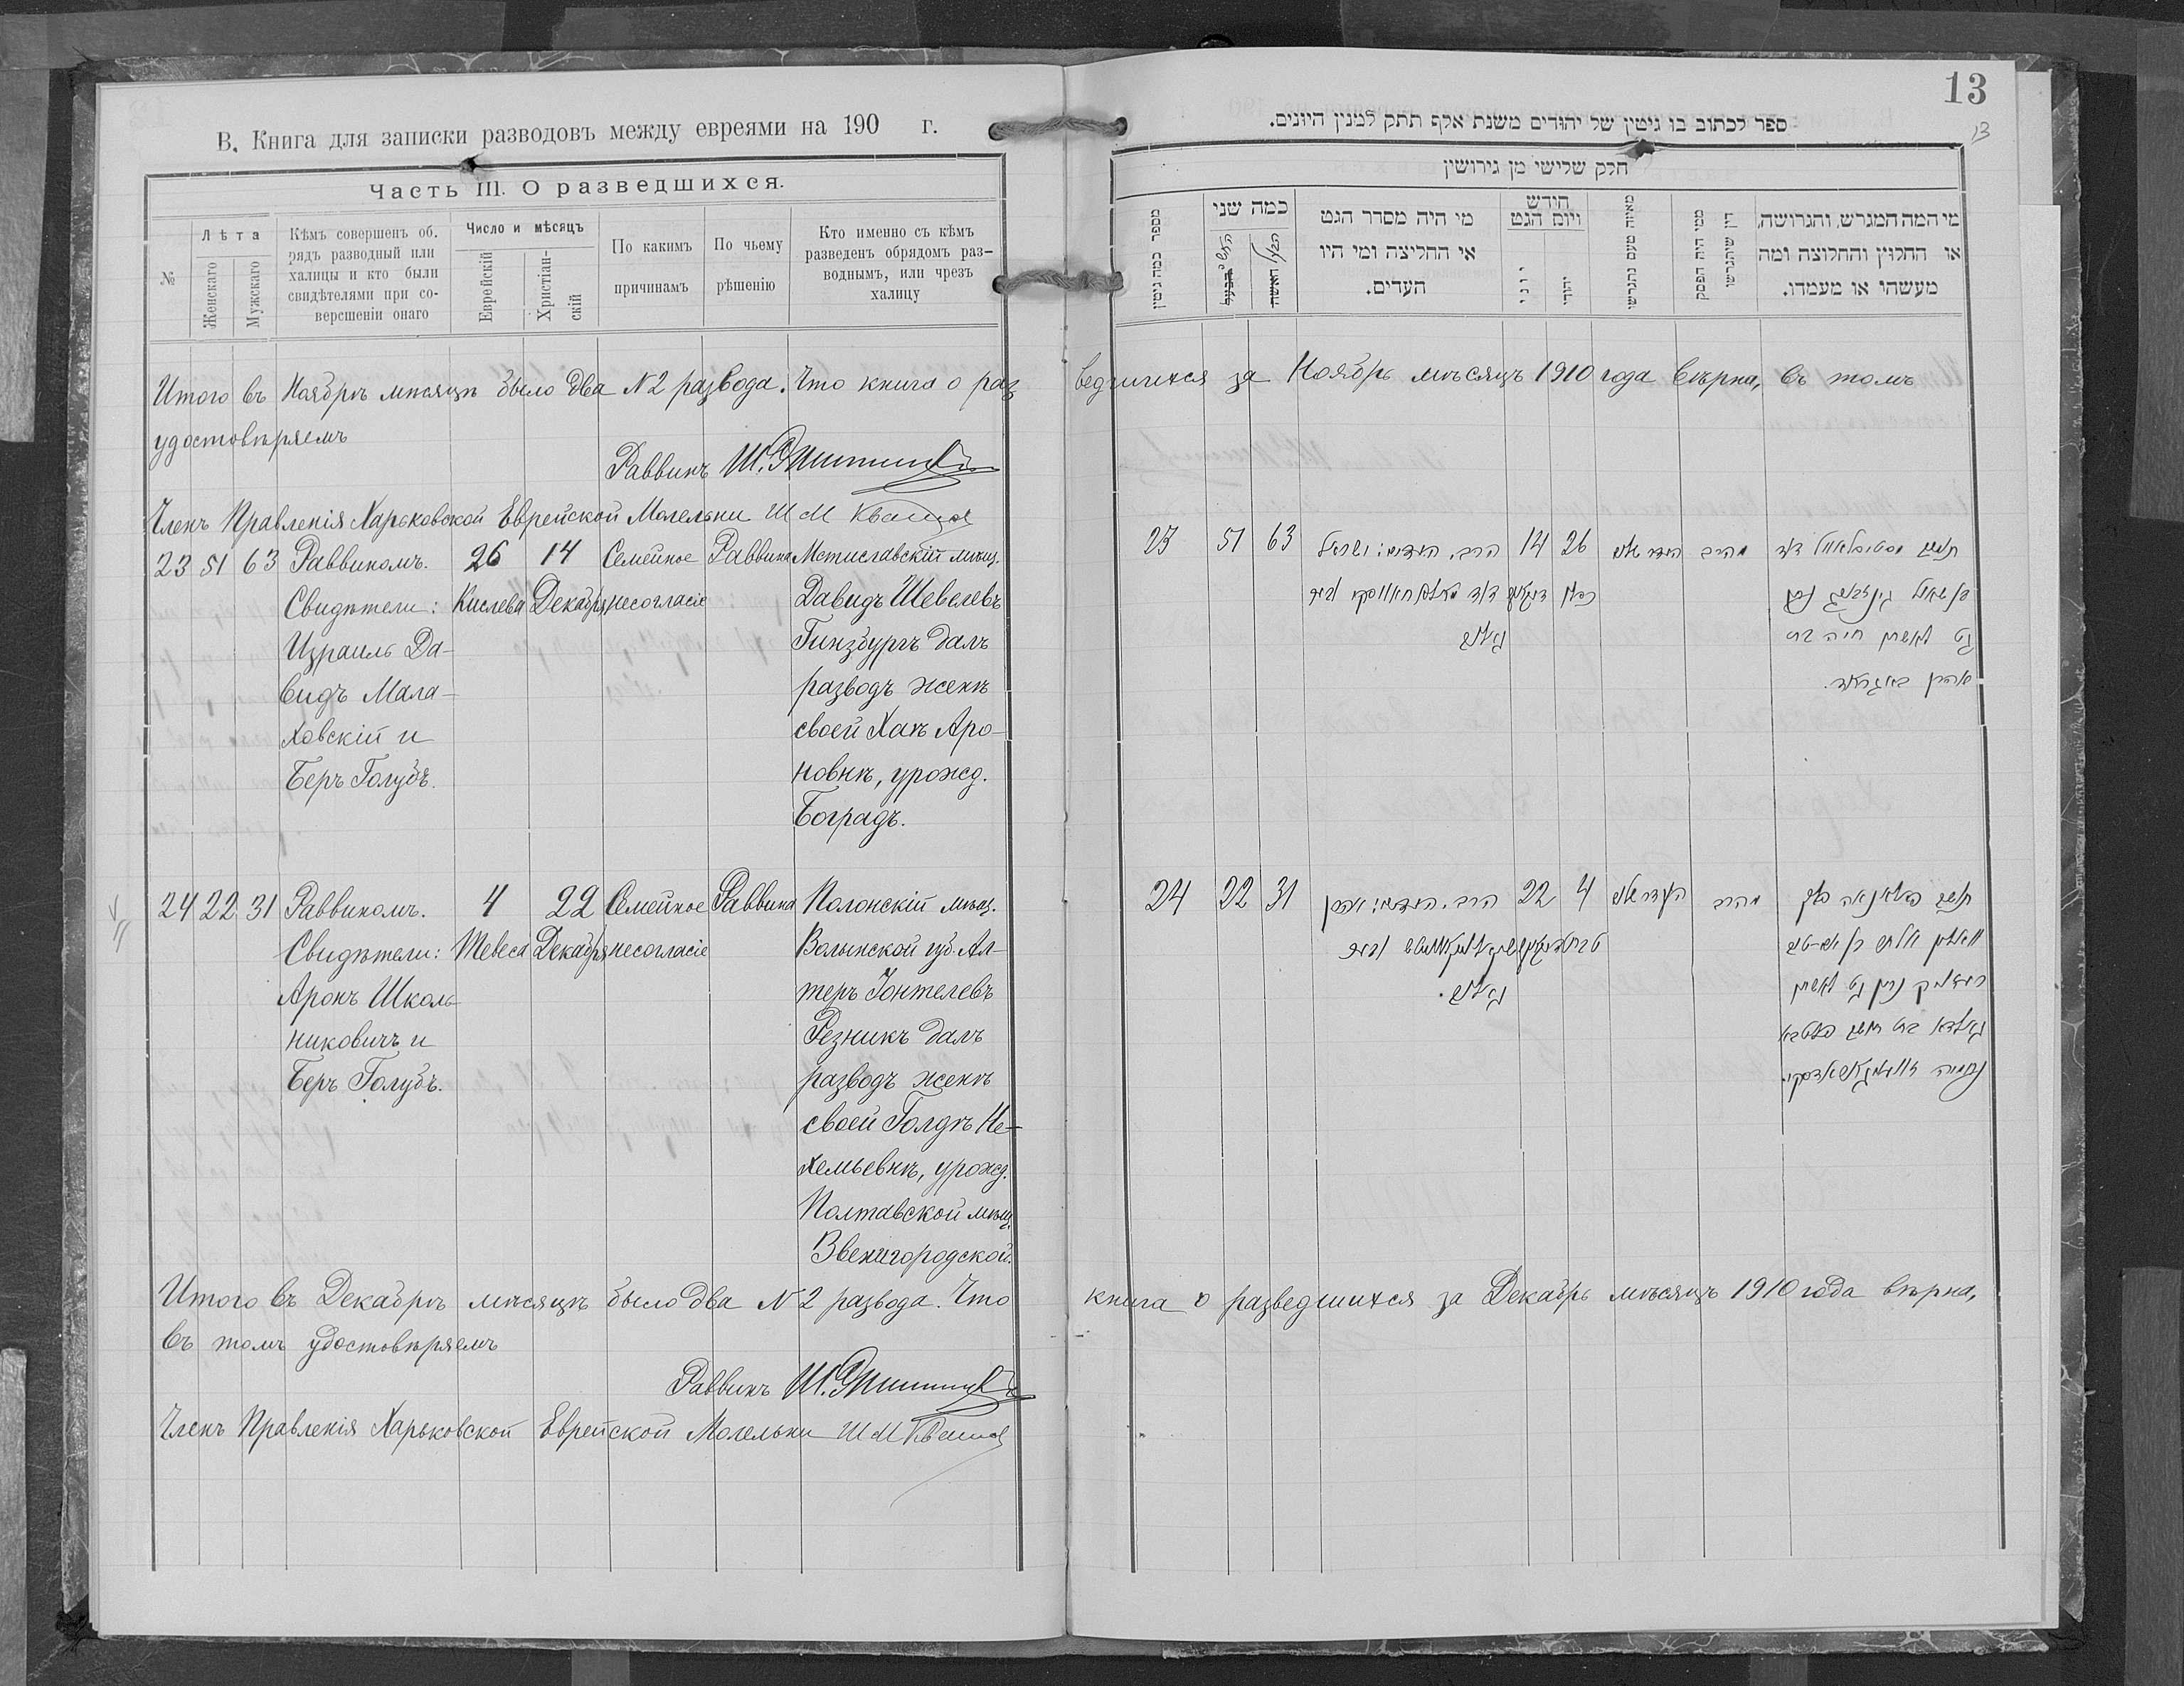 В. Книга для записки разводовъ между евреями на 190 г.
Часть III. О разведшихся.
№
Лѣта
Женскаго
Мужскаго
Кѣмъ совершенъ об.
рядъ разводный или
халицы и кто были
свидѣтелями при со-
вершеніи онаго
Число и мѣсяцъ
Еврейскій
Христіан-
скій
По какимъ
причинамъ
По чьему
рѣшенію
Кто именно съ кѣмъ
разведенъ обрядомъ раз-
воднымъ, или чрезъ
халицу
Итого въ Ноябрѣ мѣсяцѣ было два №2 развода. Что книга о раз
удостовѣряемъ
Раввинъ
Членъ Правленія Харьковской Еврейской Молельни Ш М
23 51 63 Раввиномъ. 26 14 Семейное Раввина Мстиславскій мѣщ.
Свидѣтели: Кислева Декабря несогласіе Давидъ Шевелевъ
Израиль Да- Гинзбургъ далъ
видъ Мала- разводъ женѣ
ховскій и своей Хаѣ Аро-
Беръ Голубъ. новнѣ, урожд.
Боградъ.
24 22 31 Раввиномъ. 4 22 Семейное Раввина Полонскій мѣщ.
Свидѣтели: Тевеса Декабря несогласіе Волынской губ. Ал-
Аронъ Школь- теръ Іонтелевъ
никовичъ и Резникъ далъ
Беръ Голубъ. разводъ женѣ
своей Голдѣ Не-
хемьевнѣ, урожд.
Полтавской мѣщ.
Звенигородской.
Итого въ Декабрѣ мѣсяцѣ было два №2 развода. Что
въ томъ удостовѣряемъ
Раввинъ
Членъ Правленія Харьковской Еврейской Молельни Ш М
13
13
ספר לכתוב בו גיטין של יהודים משנת אלף תתק למנין היונים.
חלק שלישי מן גירושין
מספר כמה גיטין
כמה שני
האשה
מי היה מסדר הגט
או החליצה ומי היו
העדים.
חודש
ויום הגט
יוני
יהודי
מאיזה טעם נתגרשו
ממי היה הפסק
דין שיתגרשו
מי המה המגרש, והגרושה,
או החלוץ והחלוצה ומה
מעשהו או מעמדו.
ведшихся за Ноябрь мѣсяцъ 1910 года вѣрна, въ томъ
23 51 63 הרב, העדים: ישראל 14 26 מהרב דוד
גאלוב גינצבורג נתן
גט לאשתו חיה בת
אהרן באגראד.
24 22 31 הרב. העדים: אהרן 22 4 מהרב
גאלוב. נתן גט לאשתו
גאלדא בת
נחמיה
книга о разведшихся за Декабрь мѣсяцъ 1910 года вѣрна,